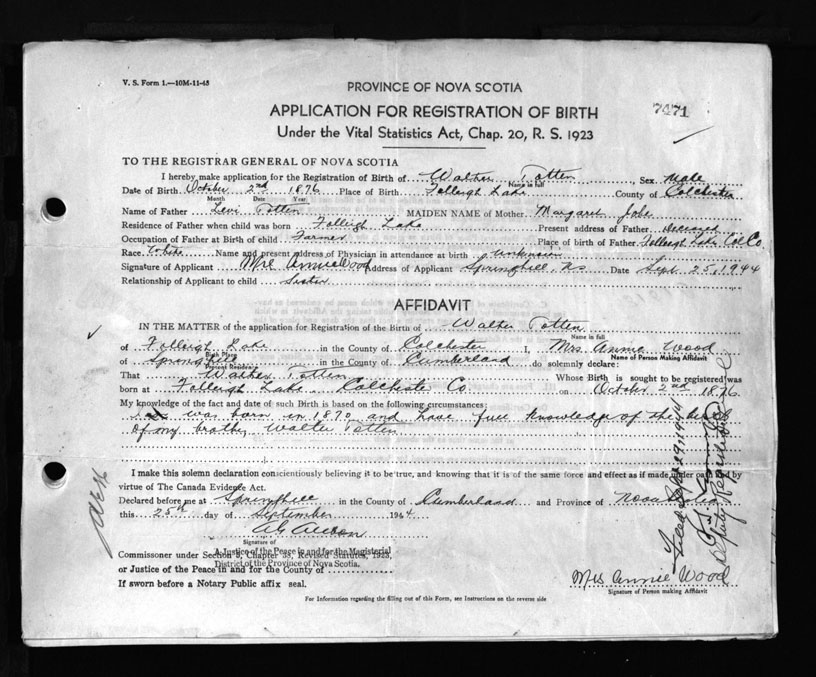 V. S. Form 1.—10M-11-43
PROVINCE OF NOVA SCOTIA
APPLICATION FOR REGISTRATION OF BIRTH
7471
Under the Vital Statistics Act, Chap. 20, R. S. 1923
TO THE REGISTRAR GENERAL OF NOVA SCOTIA
I hereby make application for the Registration of Birth of Walter Totten, Sex Male
Name in full
Date of Birth October 2nd 1876 Place of Birth Folleigh Lake County of Colchester
Month Date Year
Name of Father Levi Totten MAIDEN NAME of Mother Margaret
Residence of Father when child was born Folleigh Lake Present address of Father Deceased
Occupation of Father at Birth of child Farmer Place of Birth of Father Folleigh Lake Col Co.
Race White Name and present address of Physician in attendance at birth unknown
Signature of Applicant Mrs Annie Wood Address of Applicant Springhill, NS Date Sept. 25, 1944
Relationship of Applicant to child Sister
AFFIDAVIT
IN THE MATTER of the application for Registration of the Birth of Walter Totten
Name in full
of Folleigh Lake in the County of Colchester I, Mrs. Annie Wood
Birth Place Name of Person Making Affidavit
of Springhill in the County of Cumberland do solemnly declare:
Present Residence
That Walter Totten Whose Birth is sought to be registered was
born at Folleigh Lake, Colchester Co. on October 2nd 1876
My knowledge of the fact and date of such Birth is based on the following circumstances:
I was born in 1870 and have full knowledge of the birth
of my brother, Walter Totten
I make this solemn declaration conscientiously believing it to be true, and knowing that it is of the same force and effect as if made under oath and by
virtue of The Canada Evidence Act.
Declared before me at Springhill in the County of Cumberland and Province of Nova Scotia
this 25th day of September 1944
Signature of
A Justice of the Peace in and for the Magisterial
Commissioner under Section 3, Chapter 38, Revised Statutes, 1923,
District of the Province of Nova Scotia.
or Justice of the Peace in and for the County of
If sworn before a Notary Public affix seal.
Mrs Annie Wood
Signature of Person making Affidavit
For Information regarding the filling out of this Form, see Instructions on the reverse side
Deputy Registrar General